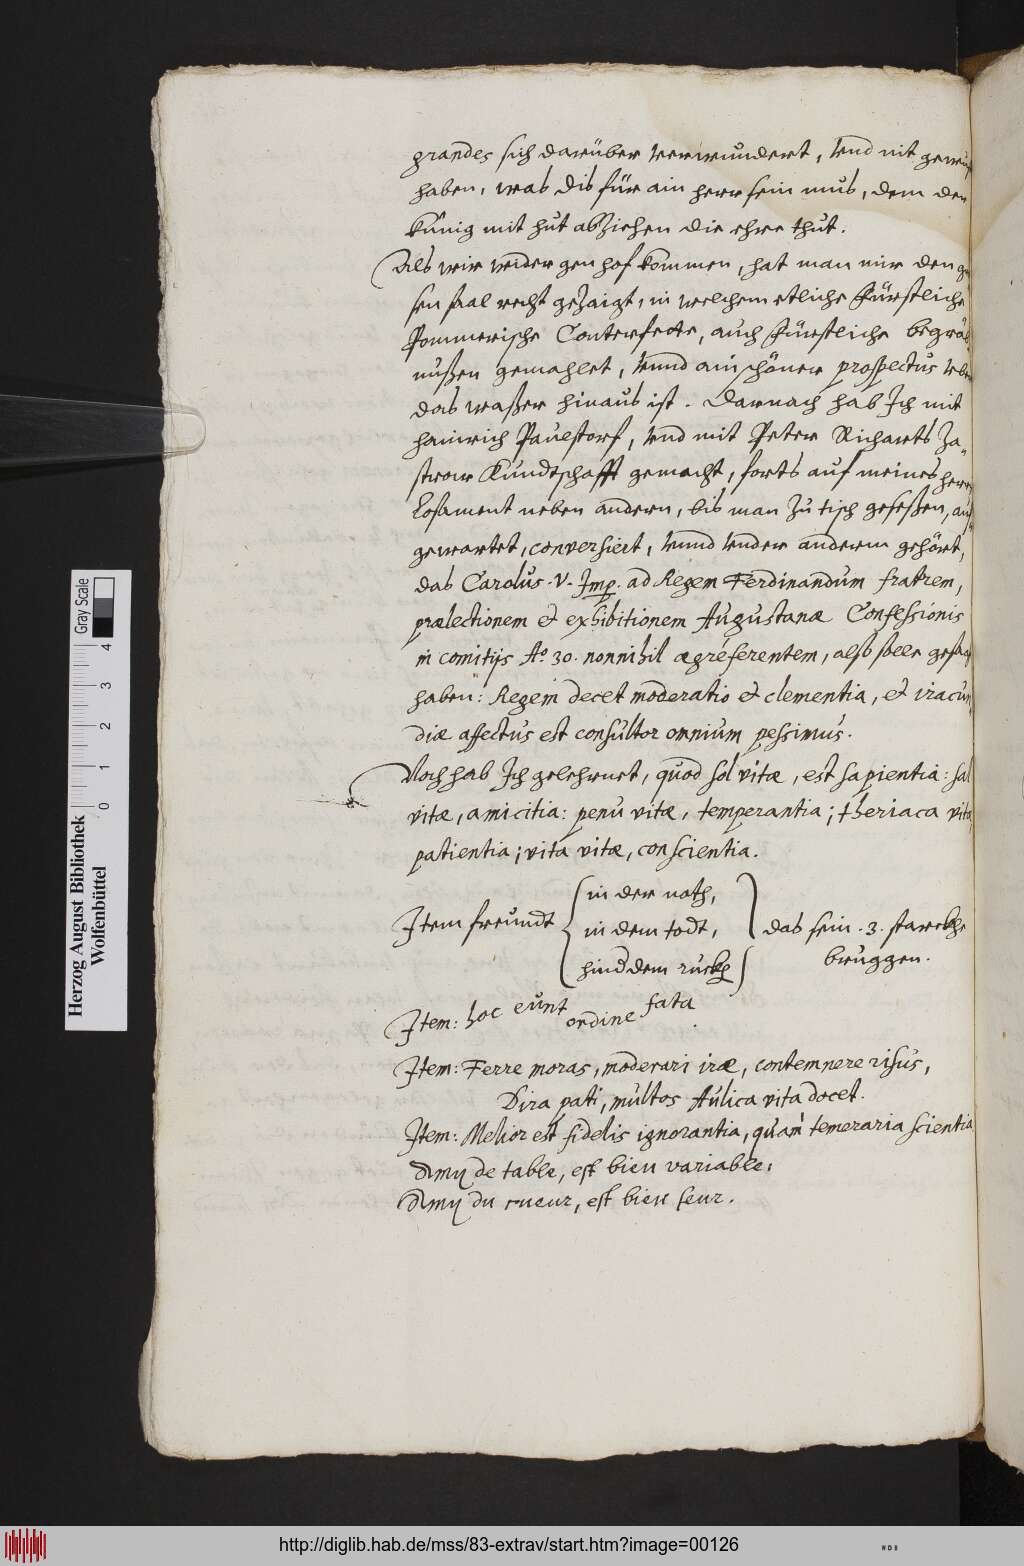 grandes sich darüber verwundert, vnd nit gewust
haben, was dis für ain herr sein mus, dem der
künig mit hut abZiehen die ehre thut.
Als wir wider gen hof kommen, hat man mir den
sen saal recht geZaigt, in welchem etliche Fürstliche
Pommerische Conterfecte, auch Fürstliche begräb
nußen gemahlet, vnnd ain schöner prospectus vber
das waßer hinaus ist. Darnach hab Ich mit
Hainrich Paulstorf, vnd mit Peter Richarts Za-
strow Kundtschafft gemacht, forts auf meines herrn
Losament neben andern, bis man Zu tisch geseßen, auf
gewartet, conversiert, vnnd vnder anderm gehört,
das Carolus .V. Imp. ad Regem Ferdinandum fratrem,
prælectionem & exhibitionem Augustanæ Confessionis
in comitijs Aº. 30. nonnihil ægré ferentem, also solle gesagt
haben: Regem decet moderatio & clementia, & iracun
diæ affectus est consultor omnium pessimus.
Noch hab Ich gelehrnet, quod sol vitæ, est sapientia: sal
vitæ, amicitia: penu vitæ, temperantia; theriaca vitæ
patientia; vita vitæ, conscientia.
Item freundt { in der noth, in dem todt, hind dem ruckh } das sein .3. starckhe
bruggen.
Item: hoc eunt ordine fata.
Item: Ferre moras, moderari iræ, contemnere risus,
Dira pati, multos Aulica vita docet.
Item: Melior est fidelis ignorantia, quàm temeraria scientia
Amy de table, est bien variable:
Amy du cueur, est bien seur.
Herzog August Bibliothek
Wolfenbüttel
Gray Scale
0 1 2 3 4
http://diglib.hab.de/mss/83-extrav/start.htm?image=00126